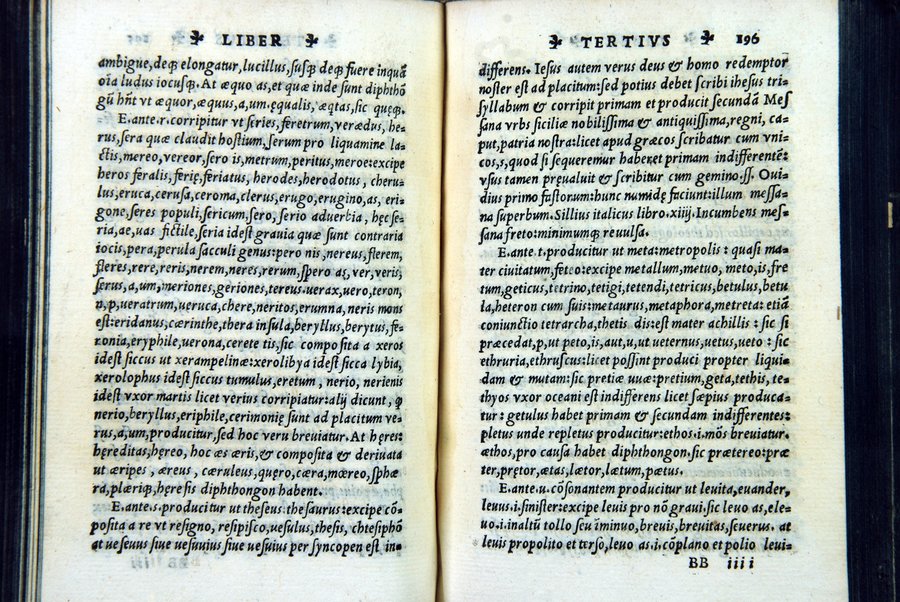 LIBER
ambigue, deq̃ elongatur, lucillus, susq̃ deq̃ fuere inquã
oĩa ludus iocusq̃. At æquo as, et quæ inde sunt diphthõ
gũ hñt vt æquor, æquus, a, um, ęqualis, æqtas, sic quęq̃.
E. ante. r. corripitur vt series, feretrum, verædus, he-
rus, sera quæ claudit hostium, serum pro liquamine la-
ctis, mereo, vereor, sero is, metrum, peritus, meroe: excipe
heros feralis, ferię, feriatus, herodes, herodotus, cheru-
lus, eruca, cerusa, ceroma, clerus, erugo, erugino, as, eri-
gone, seres populi, sericum, sero, serio aduerbia, hęc se-
ria, ae, uas fictile, seria idest grauia quæ sunt contraria
iocis, pera, perula sacculi genus: pero nis, nereus, flerem,
fleres, rere, reris, nerem, neres, rerum, spero as, ver, veris,
serus, a, um, meriones, geriones, tereus. uerax, uero, teron,
n, p, ueratrum, ueruca, chere, neritos, erumna, neris mons
est: eridanus, cærinthe, thera insula, beryllus, berytus, fe-
ronia, eryphile, uerona, cerete tis, sic composita a xeros
idest siccus ut xerampelinæ: xerolibya idest sicca lybia,
xerolophus idest siccus tumulus, eretum, nerio, nerienis
idest vxor martis licet verius corripiatur: alij dicunt, ꝙ
nerio, beryllus, eriphile, cerimonię sunt ad placitum ve-
rus, a, um, producitur, sed hoc veru breuiatur. At hęres:
hęreditas, hęreo, hoc æs æris, & composita & deriuata
ut æripes, æreus, cæruleus, quęro, cæra, mœreo, sphæ
ra, plæriq̃, hęresis diphthongon habent.
E. ante. s. producitur ut theseus: thesaurus: excipe cõ-
posita a re vt resigno, resipisco, uesulus, thesis, chtesiphõ
at ueseuus siue uesuuius siue uesuius per syncopen est in-
TERTIVS 196
differens. Iesus autem verus deus & homo redemptor
noster est ad placitum: sed potius debet scribi ihesus tri-
syllabum & corripit primam et producit secundã Mes
sana vrbs siciliæ nobilissima & antiquissima, regni, ca-
put, patria nostra: licet apud græcos scribatur cum vni-
co, s, quod si sequeremur haberet primam indifferentẽ:
vsus tamen pręualuit & scribitur cum gemino. ss. Oui-
dius primo fastorum: hunc numidę faciunt: illum messa-
na superbum. Sillius italicus libro. xiiij. Incumbens mes-
sana freto: minimumq̃ reuulsa.
E. ante. t. producitur ut meta: metropolis: quasi ma-
ter ciuitatum, feteo: excipe metallum, metuo, meto, is, fre
tum, geticus, tetrino, tetigi, tetendi, tetricus, betulus, betu
la, heteron cum suis: metaurus, metaphora, metreta: etiã
coniunctio tetrarcha, thetis dis: est mater achillis: sic si
præcedat, p, ut peto, is, aut, u, ut ueternus, uetus, ueto: sic
ethruria, ethruscus: licet possint produci propter liqui-
dam & mutam: sic pretiæ uuæ: pretium, geta, tethis, te-
thyos vxor oceani est indifferens licet sæpius produca-
tur: getulus habet primam & secundam indifferentes:
pletus unde repletus producitur: ethos. i. mõs breuiatur.
æthos, pro causa habet diphthongon. sic prætereo: præ
ter, prętor, ætas, lætor, lætum, pœtus.
E. ante. u. cõsonantem producitur ut leuita, euander,
leuus. i. sinister: excipe leuis pro nõ graui. sic leuo as, ele-
uo. i. inaltũ tollo seu ĩminuo, breuis, breuitas, seuerus. at
leuis propolito et terso, leuo as. i. cõplano et polio leui-
BB iiii